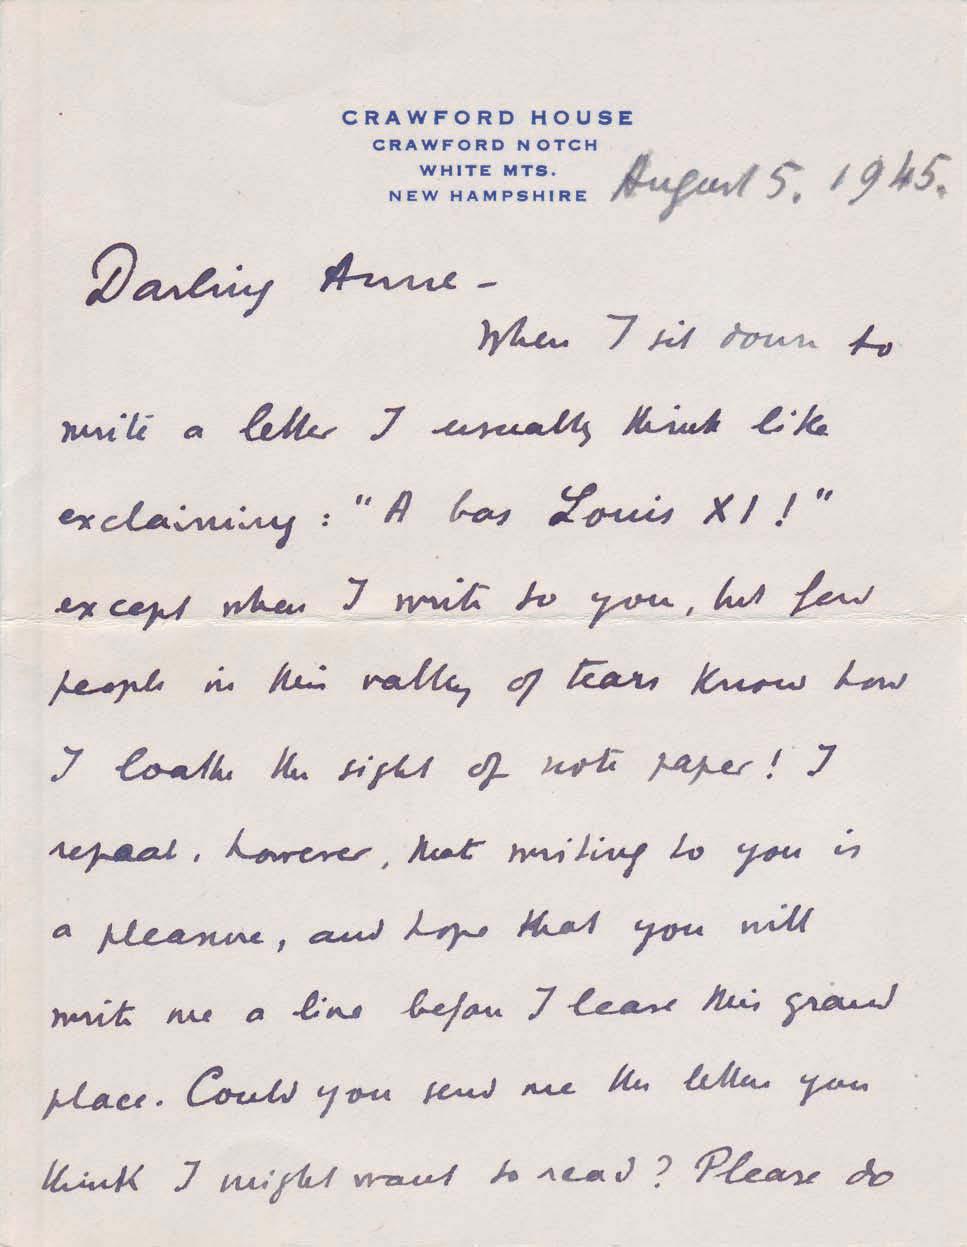 CRAWFORD HOUSE
CRAWFORD NOTCH
WHITE MTS.
NEW HAMPSHIRE
August 5. 1945.
Darling Anne -
When I sit down to
write a letter I usually think like
exclaiming: "A bas Louis XI!"
except when I write to you, but few
people in this valley of tears know how
I loathe the sight of note paper! I
repeat, however, that writing to you is
a pleasure, and hope that you will
write me a line before I leave this grand
place. Could you send me the letter you
think I might want to read? Please do